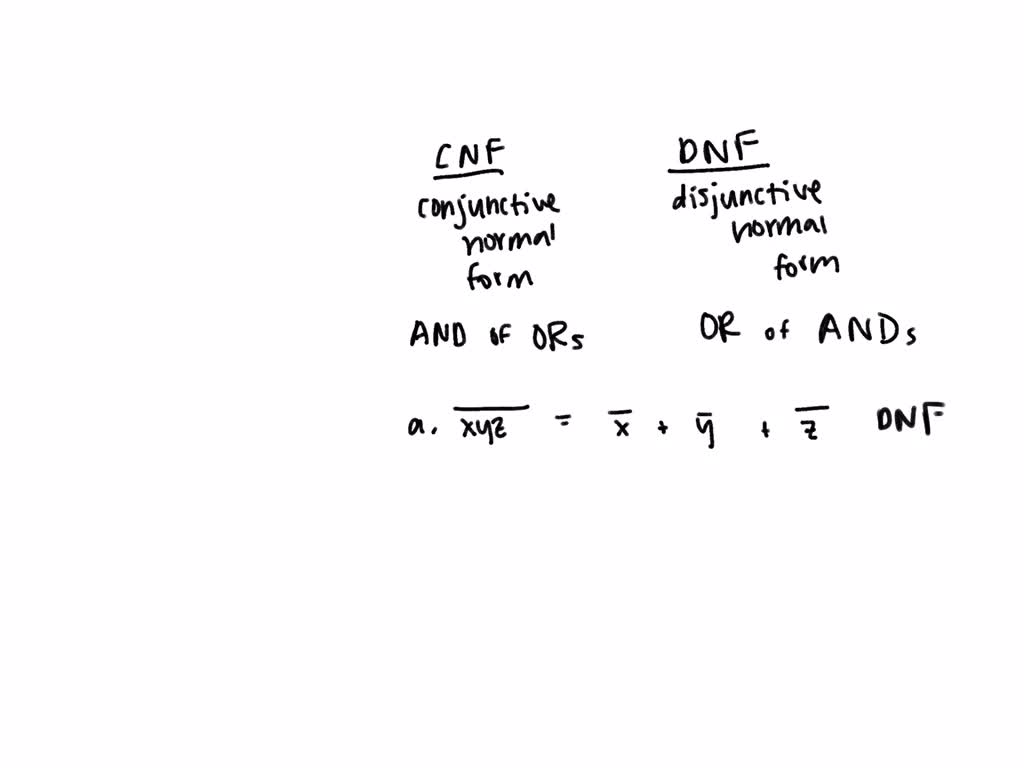 CNF DNF
conjunctive disjunctive
normal normal
form form
AND OF ORs OR of ANDs
a. \overline{xyz} = \overline{x} + \overline{y} + \overline{z} DNF